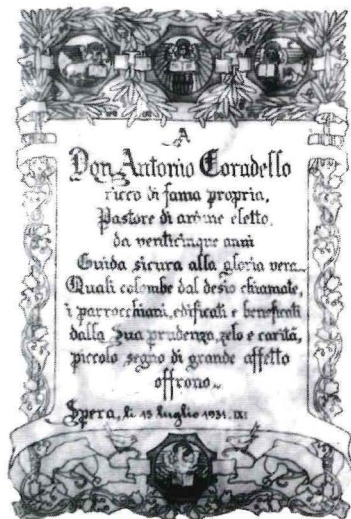 A
Don Antonio Coradello
ricco di fama propria,
Pastore di anime eletto
da venticinque anni
Guida sicura alla gloria vera
Quali colombe dal desio chiamate,
i parrocchiani, edificati e beneficati
dalla Sua prudenza, zelo e carità,
piccolo segno di grande affetto
offrono
Spera, li 15 Luglio 1931. IX.